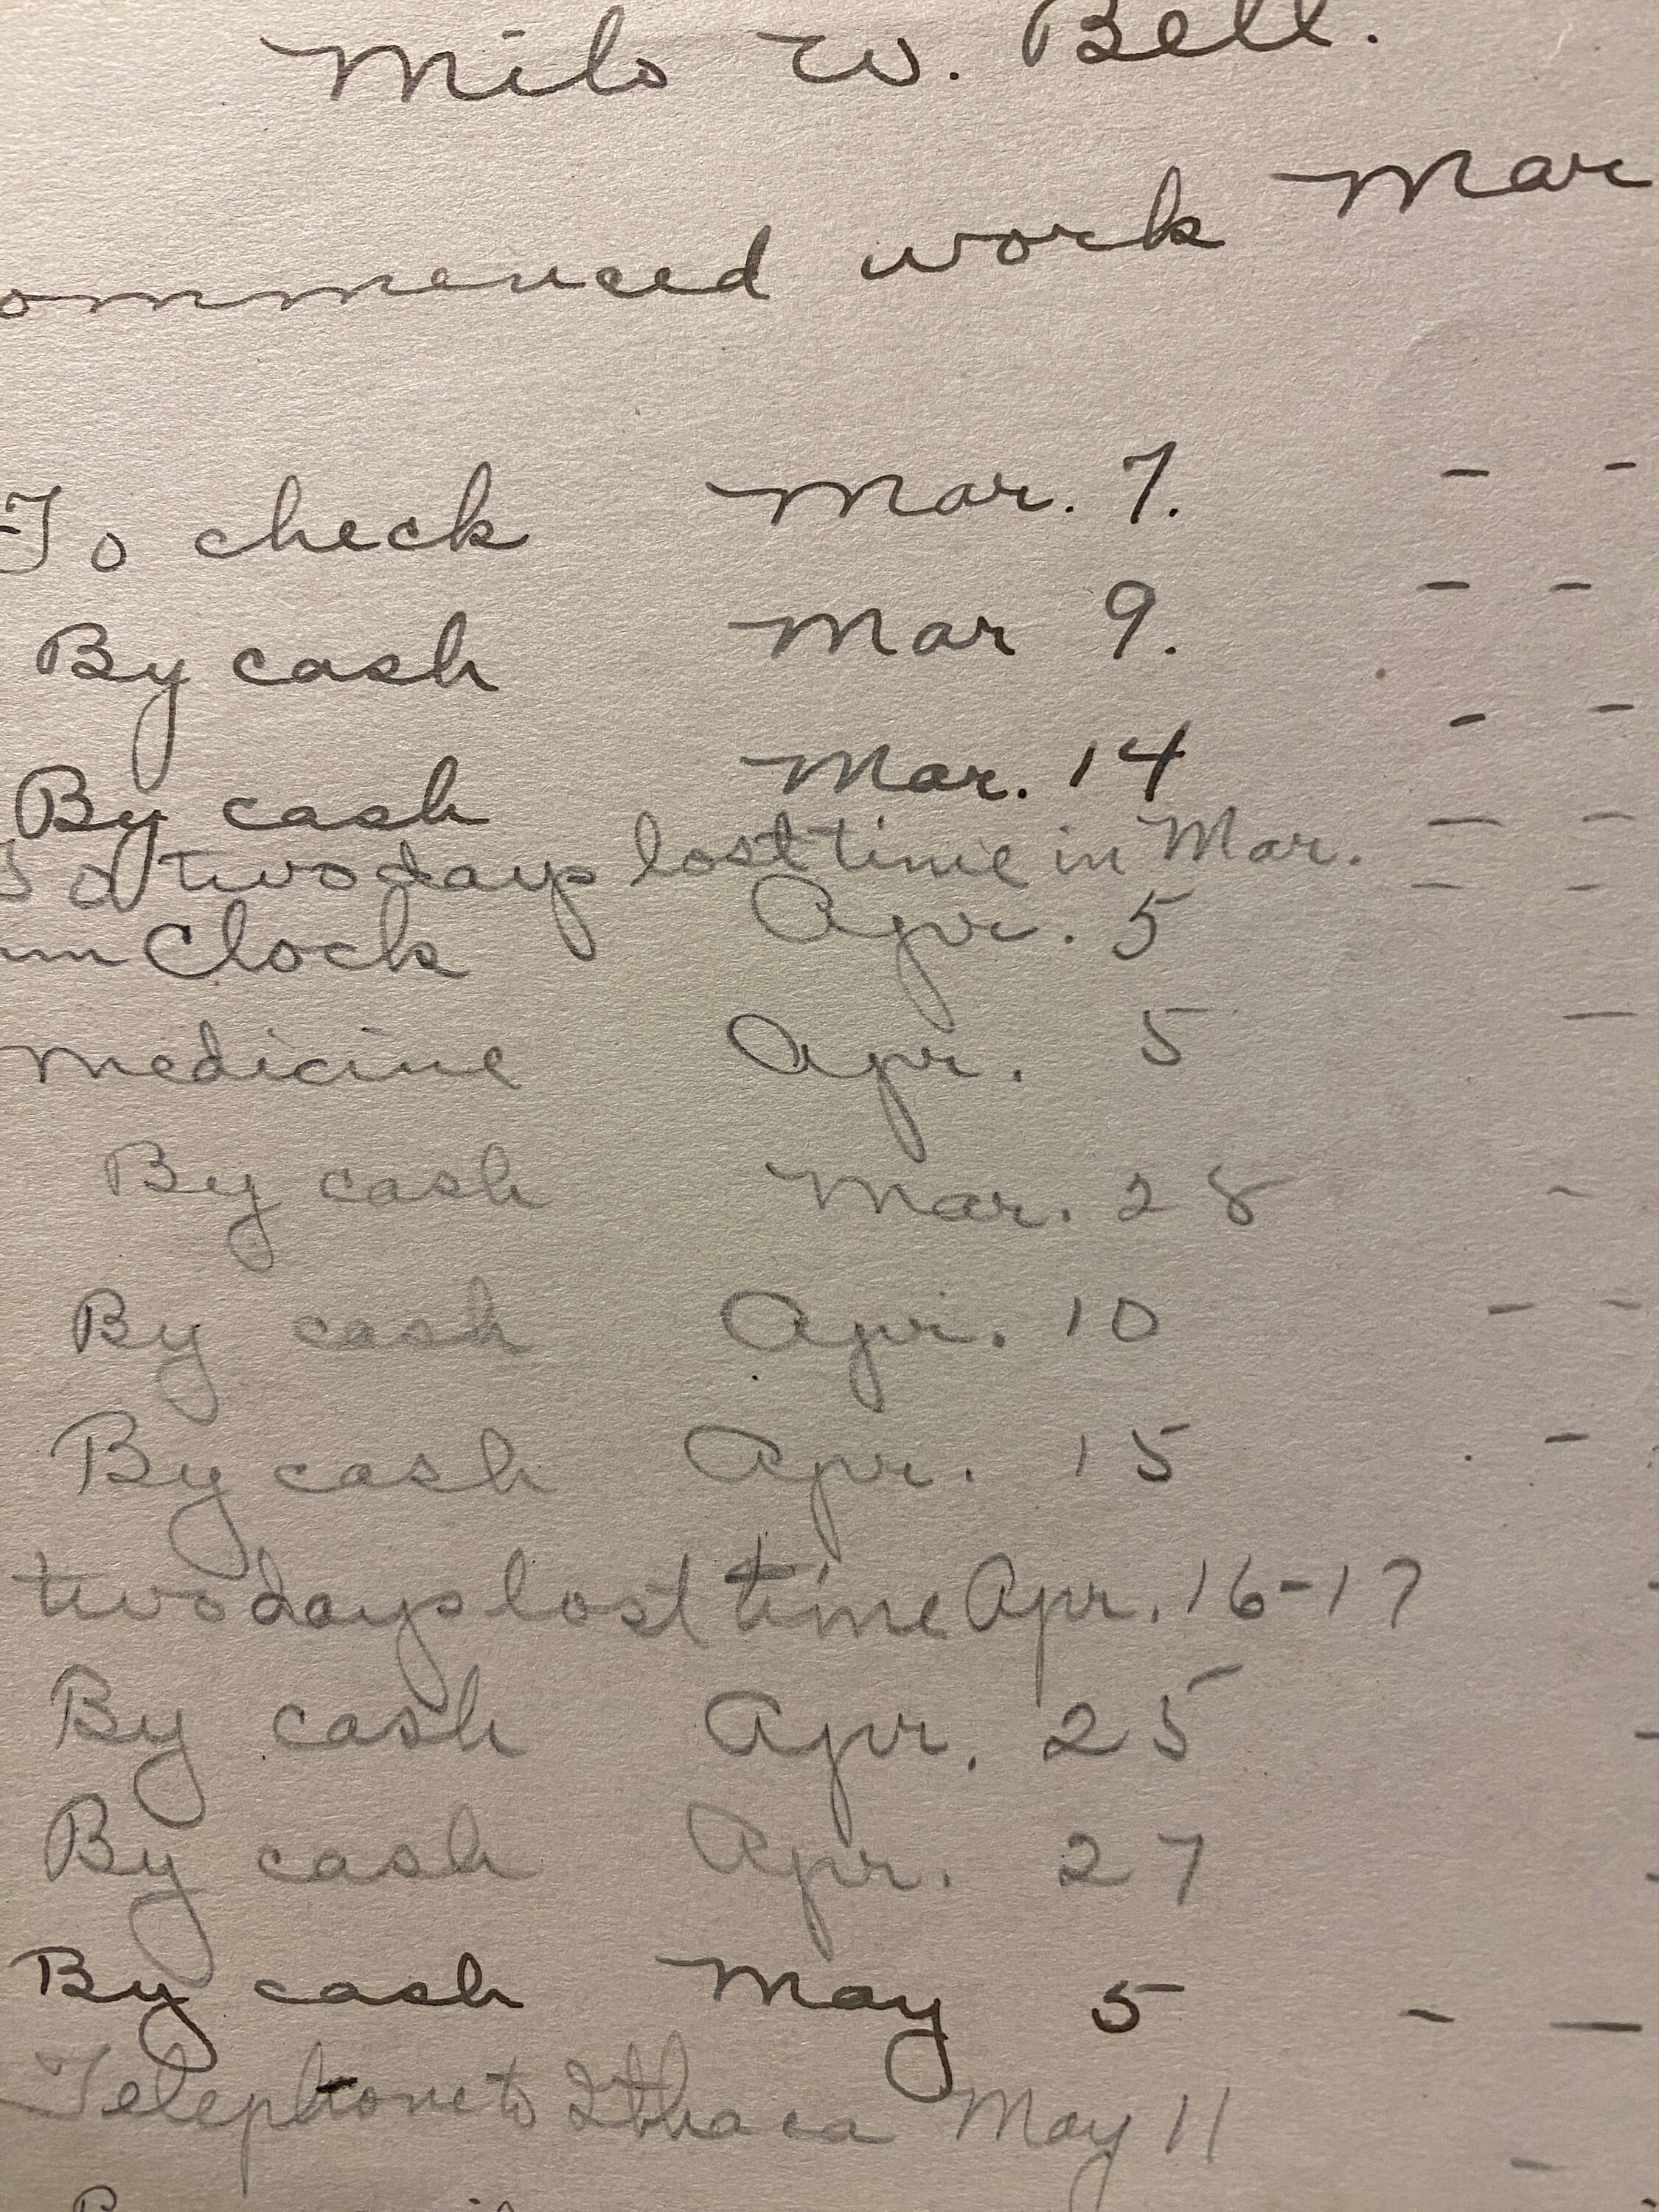 Milo W. Bell.
ommenced work Mar
To check Mar. 7. - -
By cash Mar 9. - -
By cash Mar. 14 - -
To two days lost time in Mar. - -
Clock Apr. 5 - -
medicine Apr. 5 -
By cash Mar. 28 -
By cash Apr. 10 - -
By cash Apr. 15 -
two days lost time Apr. 16-17
By cash Apr. 25 -
By cash Apr. 27 -
By cash May 5 - -
Telephone to Ithaca May 11 -